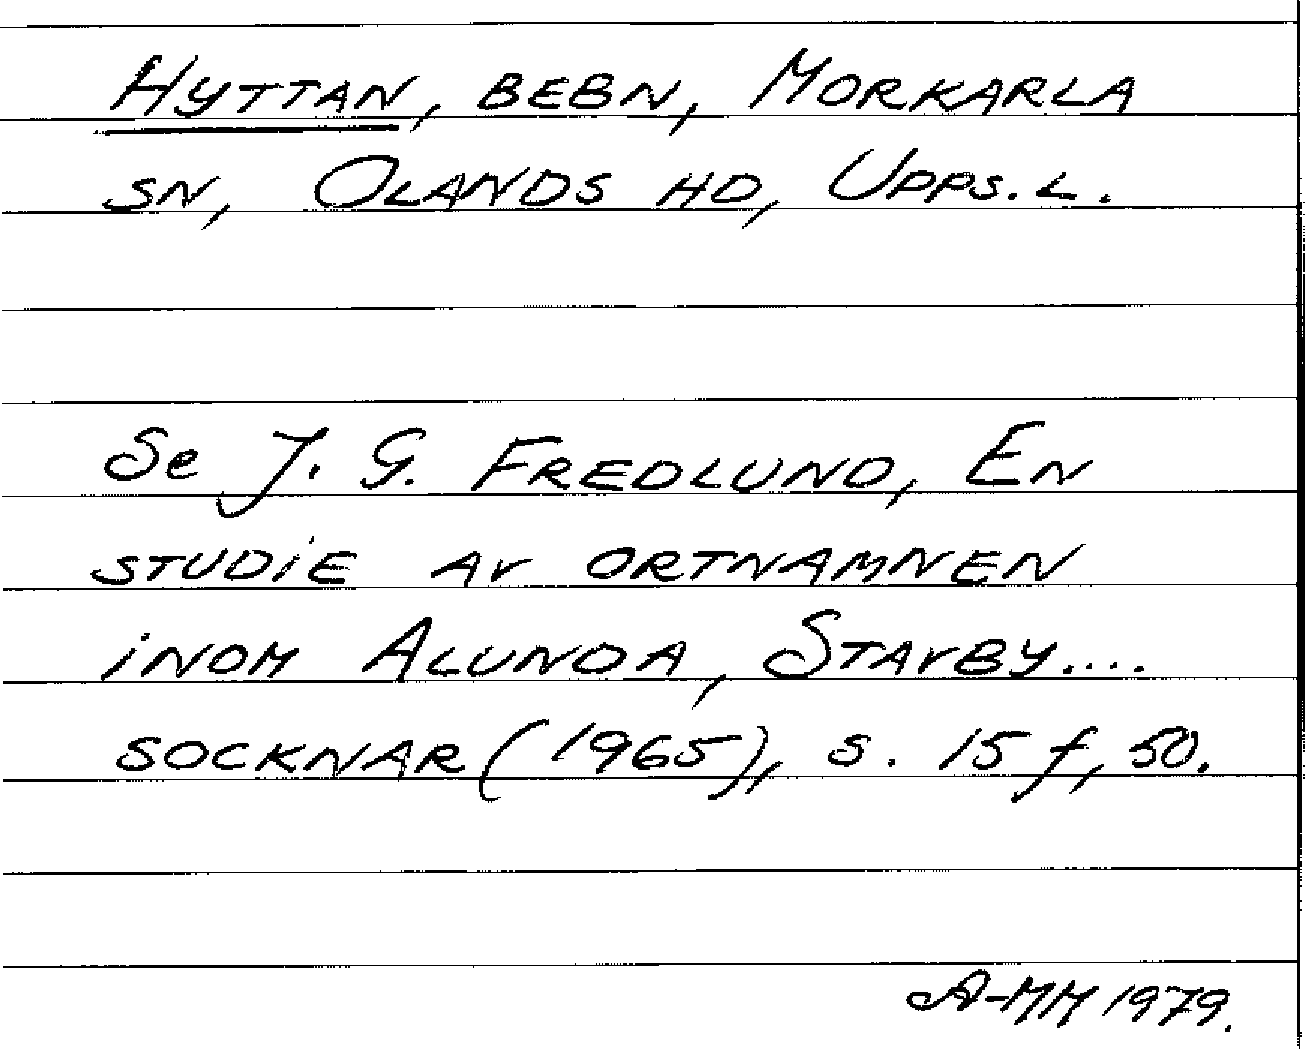 HYTTAN, BEBN, MORKARLA
SN, OLANDS HD, UPPS. L.
Se J. G. FREDLUND, EN
STUDiE AV ORTNAMNEN
iNOM ALUNDA, STAVBY....
SOCKNAR (1965), S. 15 f, 50.
A-MM 1979.